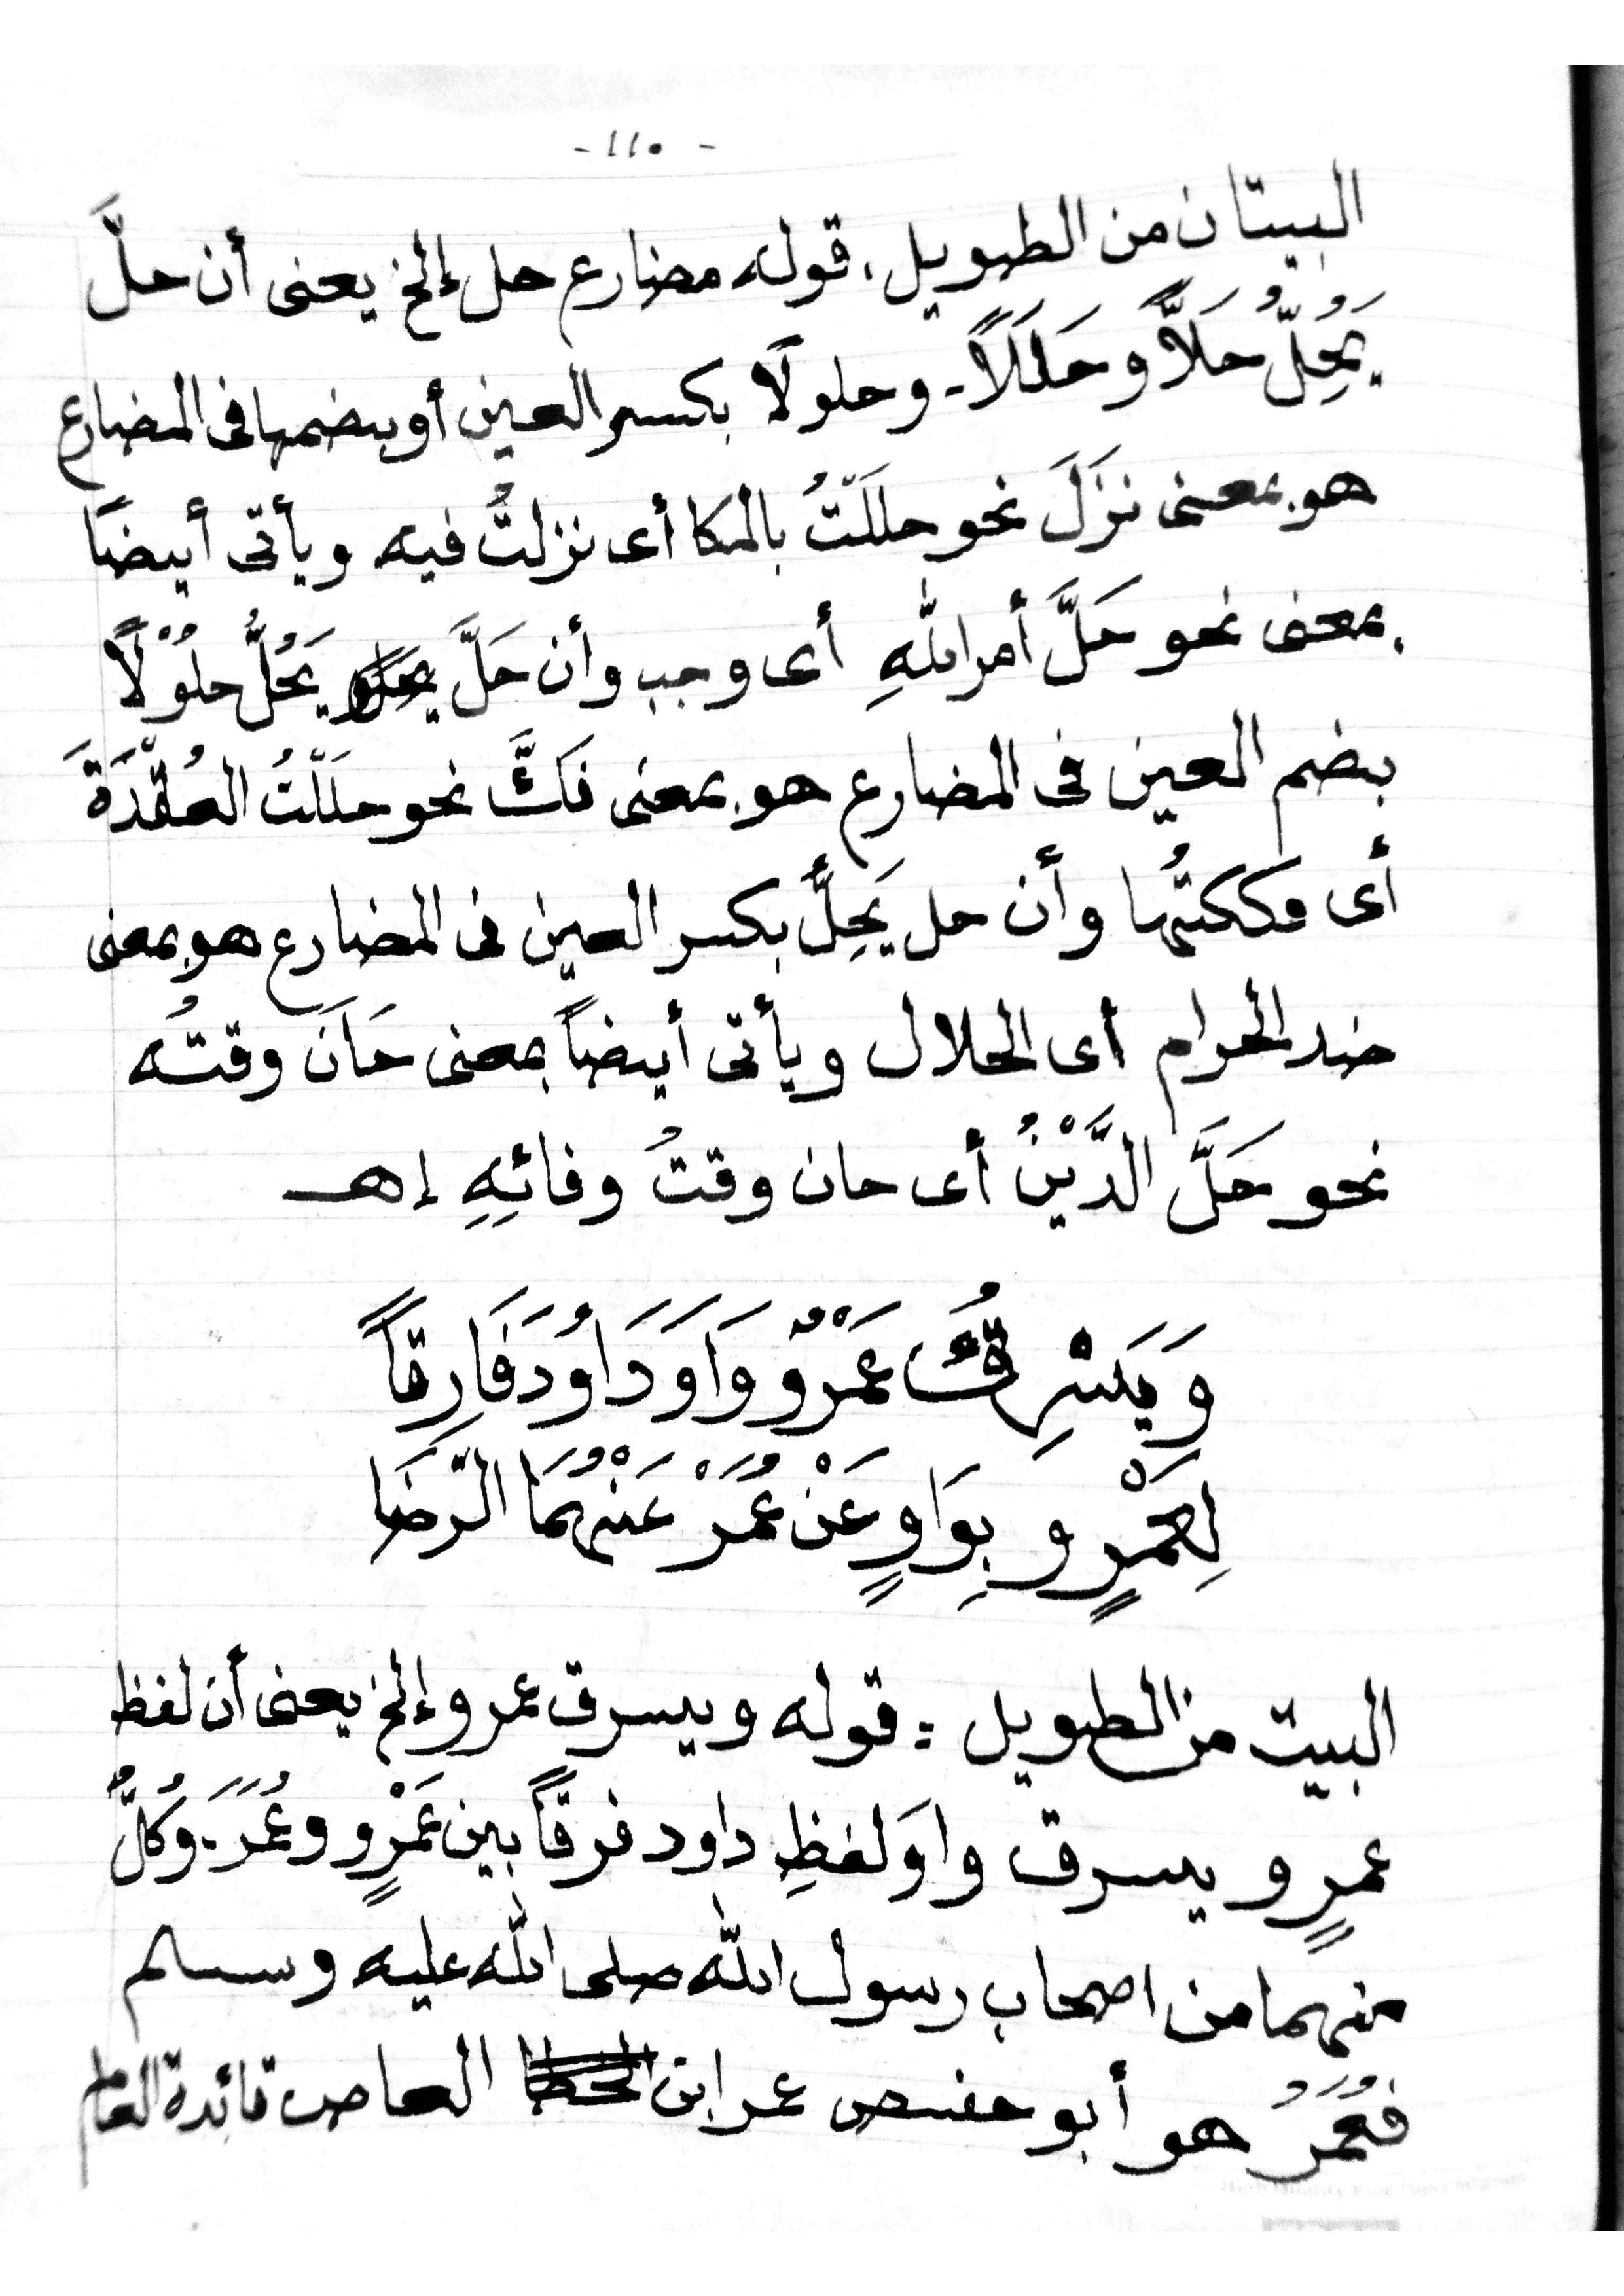 - ١١٠ -
البيتان من الطويل، قوله مضارع حل إلخ يعنى أن حلَّ
يَحُِلُّ حَلاًّ وحَلَلاً - وحلولًا بكسر العين أو بضمها فى المضارع
هو بمعنى نزَلَ نحو حللَتْتُ بالمكا أى نزلتُ فيه ويأتى أيضًا
بمعنى نحو حَلَّ أمر اللهِ أى وجب وأن حَلَّ يَحُلُّ حلُوْلًا
بضم العين فى المضارع هو بمعنى فَكَّ نحو حلَلْتُ العُقْدَةَ
أى فككتُها وأن حل يَحِلُّ بكسر العين فى المضارع هو بمعنى
ضد الحرام أى الحلال ويأتى أيضاً بمعنى حَانَ وقتُه
نحو حَلَّ الدَّيْنُ أى حان وقتُ وفائِهِ إهـ
وَيَسْرِقُ عَمْرٌو وَاوَ دَاوُدَ فَارِقاً
لِعَمْرٍو بِوَاوٍ عَنْ عُمَرْ عَنْهُمَا الرّضَا
البيت من الطويل : قوله ويسرق عمرو إلخ يعنى أن لفظ
عمرٍو يسرق واوَ لفظِ داود فرقاً بين عَمْرٍو وعُمَرَ - وكُلٌّ
منهما من اصحاب رسول الله صلى الله عليه وسلم
فعُمَرُ هو أبو حفص عمر ابن العاص قائدة العام